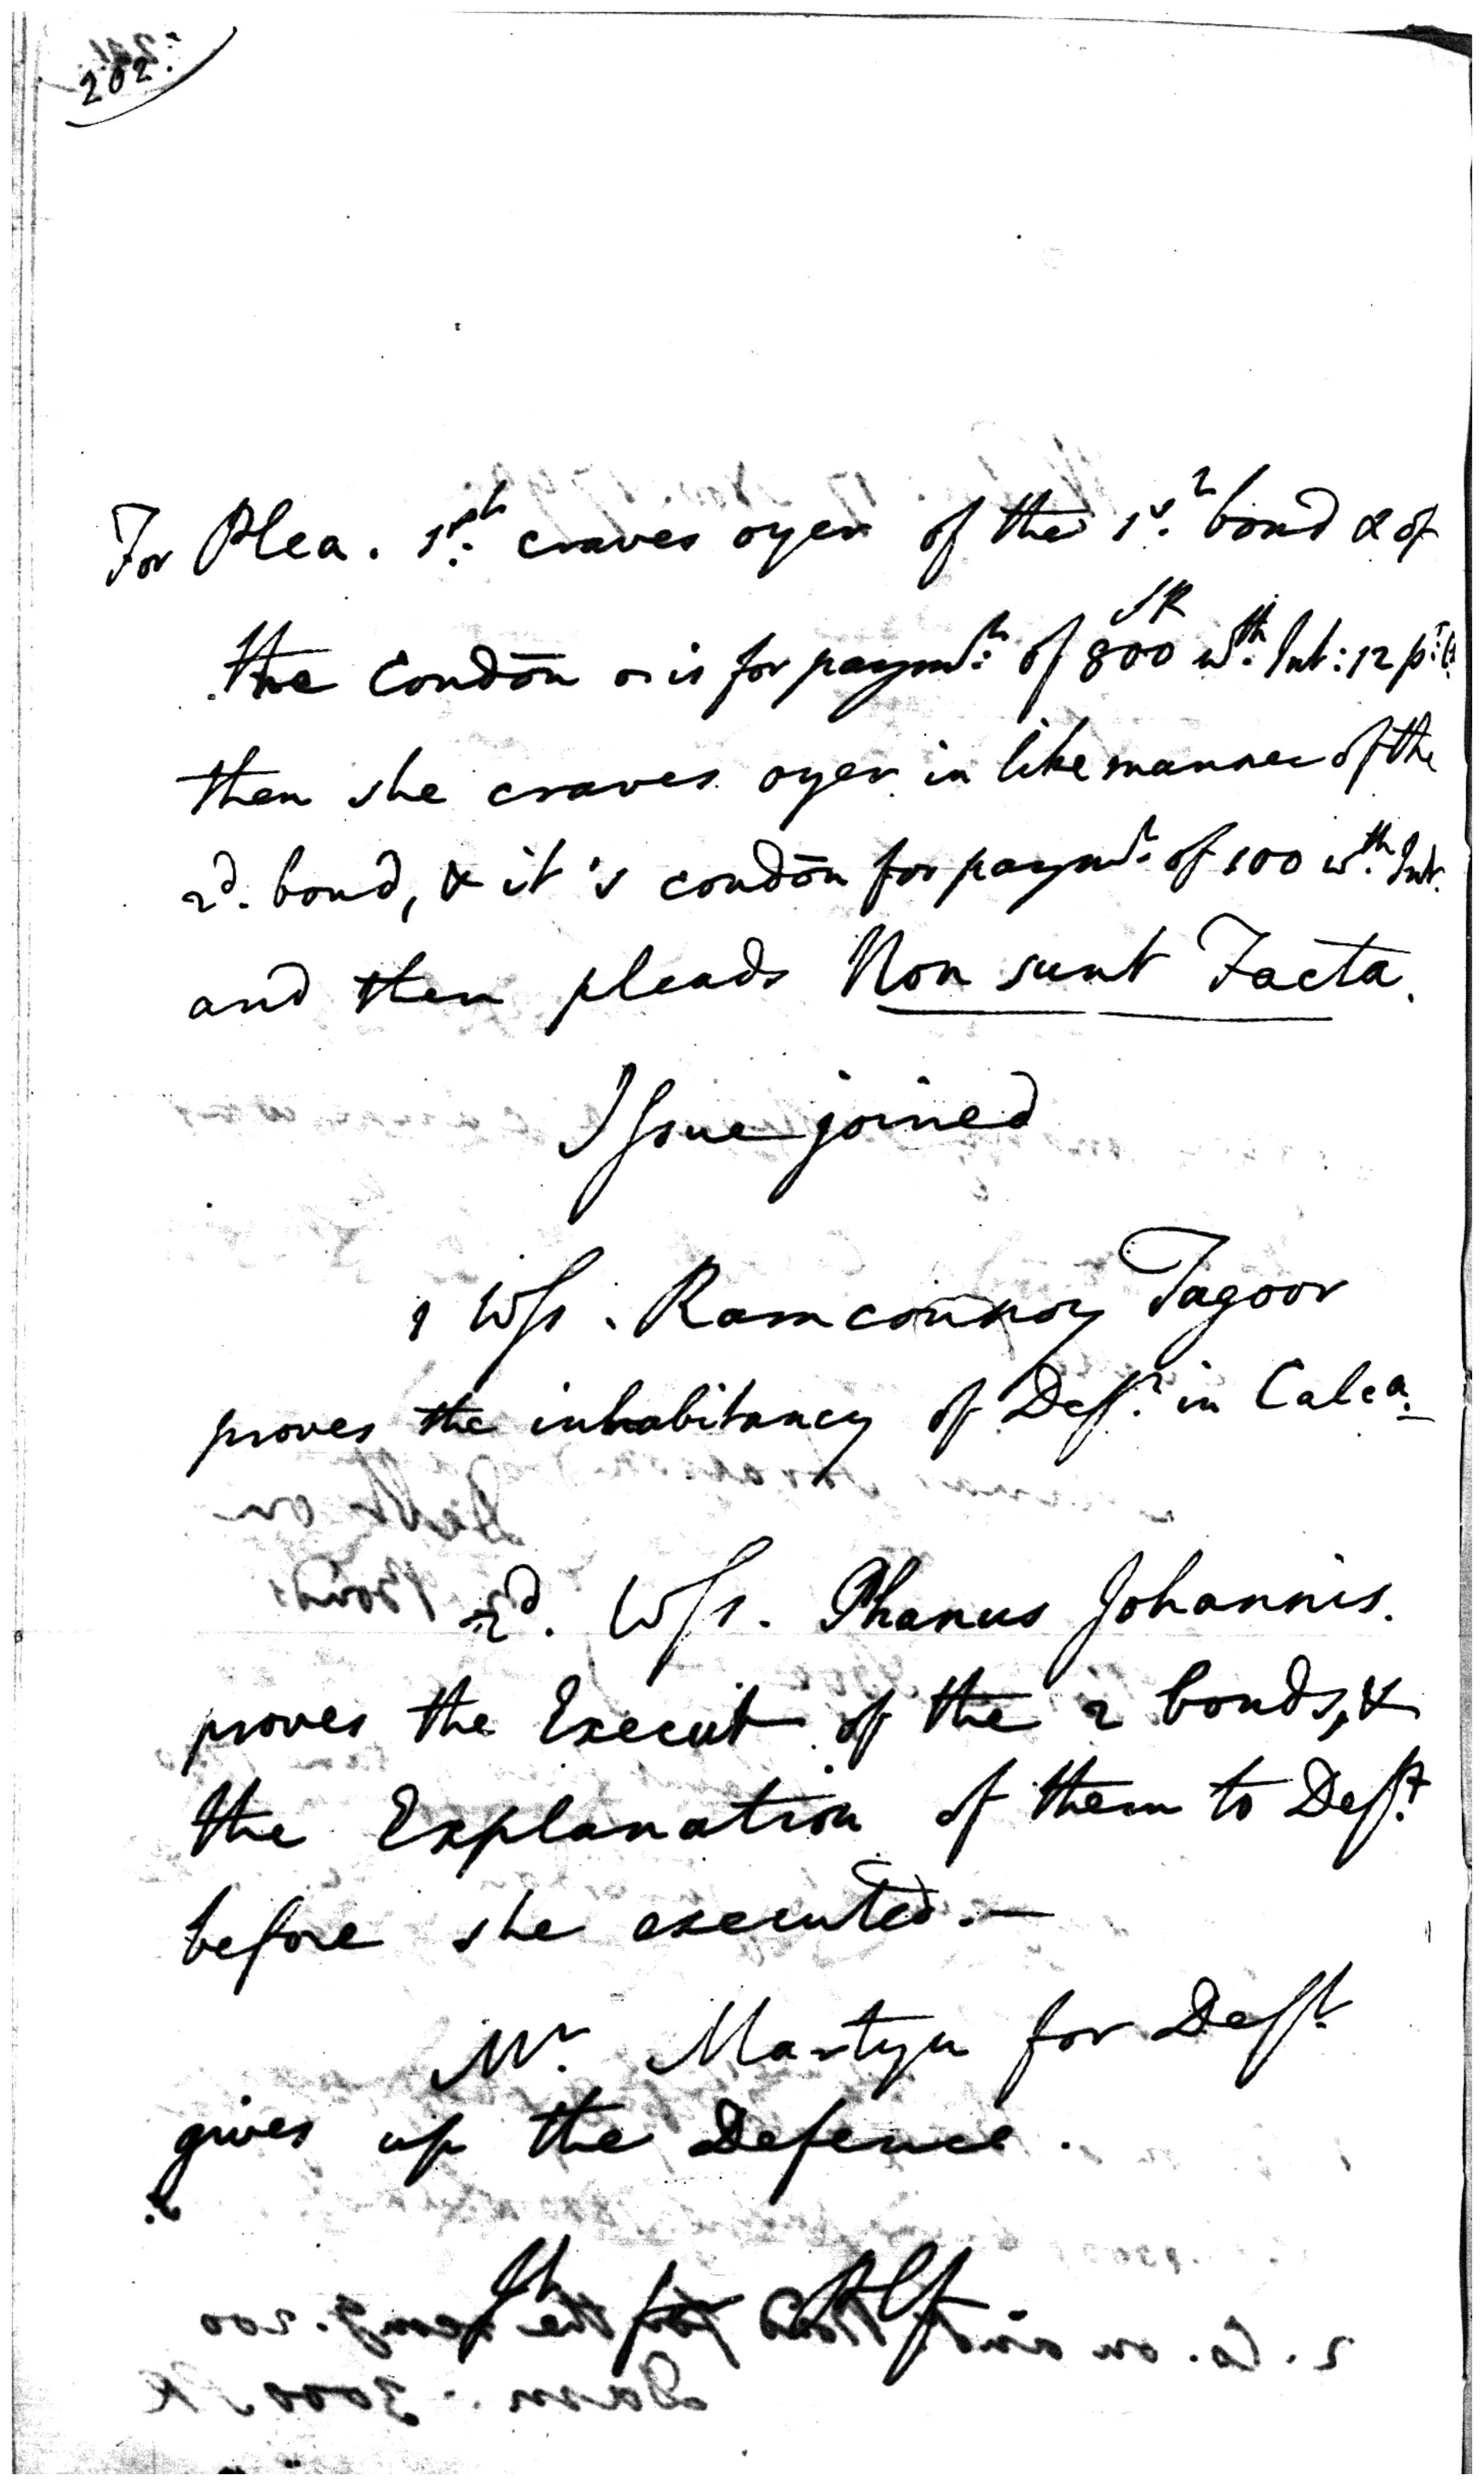 202.
For Plea. 1st craves oyer of the 1st bond & of
the Condōn is for paymt: of 800 SR wth Int: 12 p:Ct
then she craves oyer in like manner of the
2d. bond, & it's condōn for paymt of 100 wth Int.
and then pleads Non sunt Facta.
Issue joined
1 Wss. Ramconnoy Tagoor
proves the inhabitancy of Deft in Calca.
2d. Wss. Phanus Johannis.
proves the Execut of the 2 bonds, &
the Explanation of them to Deft
before she executed.—
Mr. Martyn for Deft
gives up the Defence.
Jt for Plf